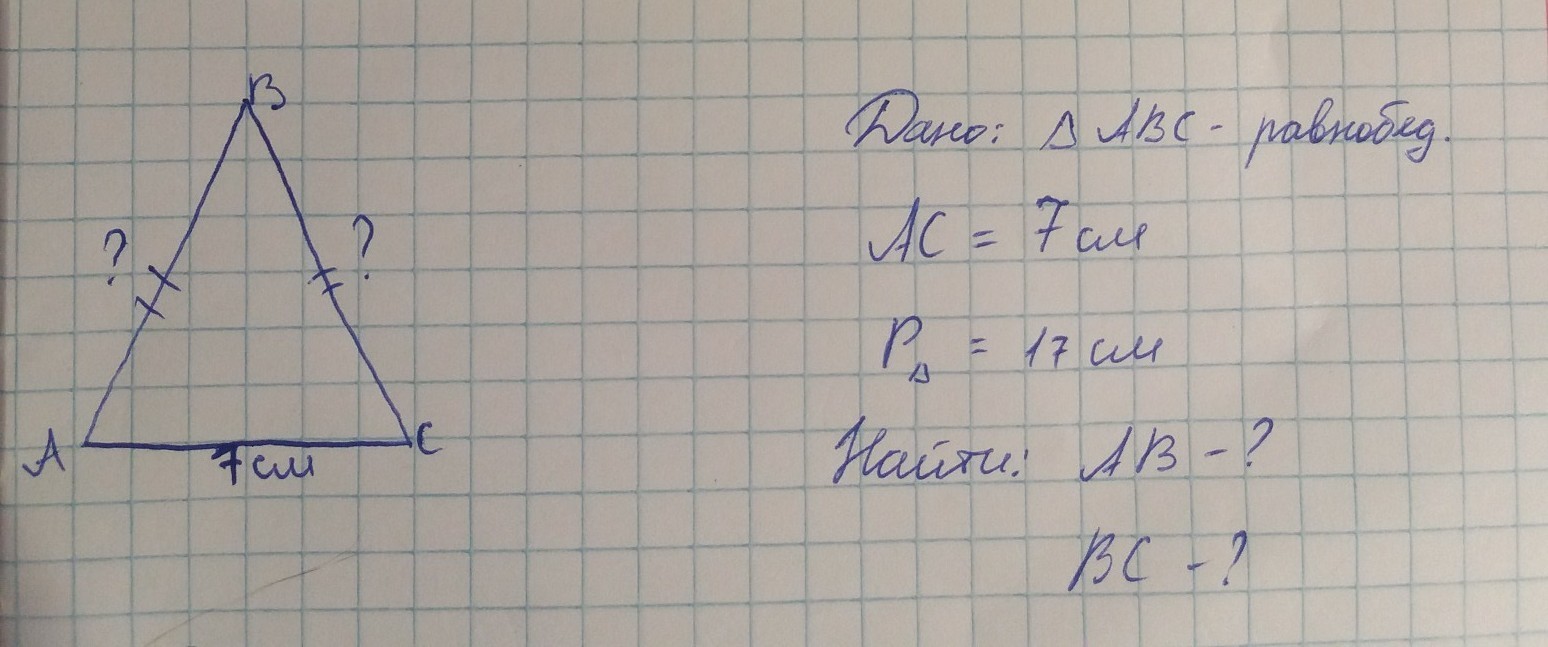 B
? ?
A C
7 см
Дано: Δ ABC - равнобед.
AC = 7 см
P_Δ = 17 см
Найти: AB - ?
BC - ?